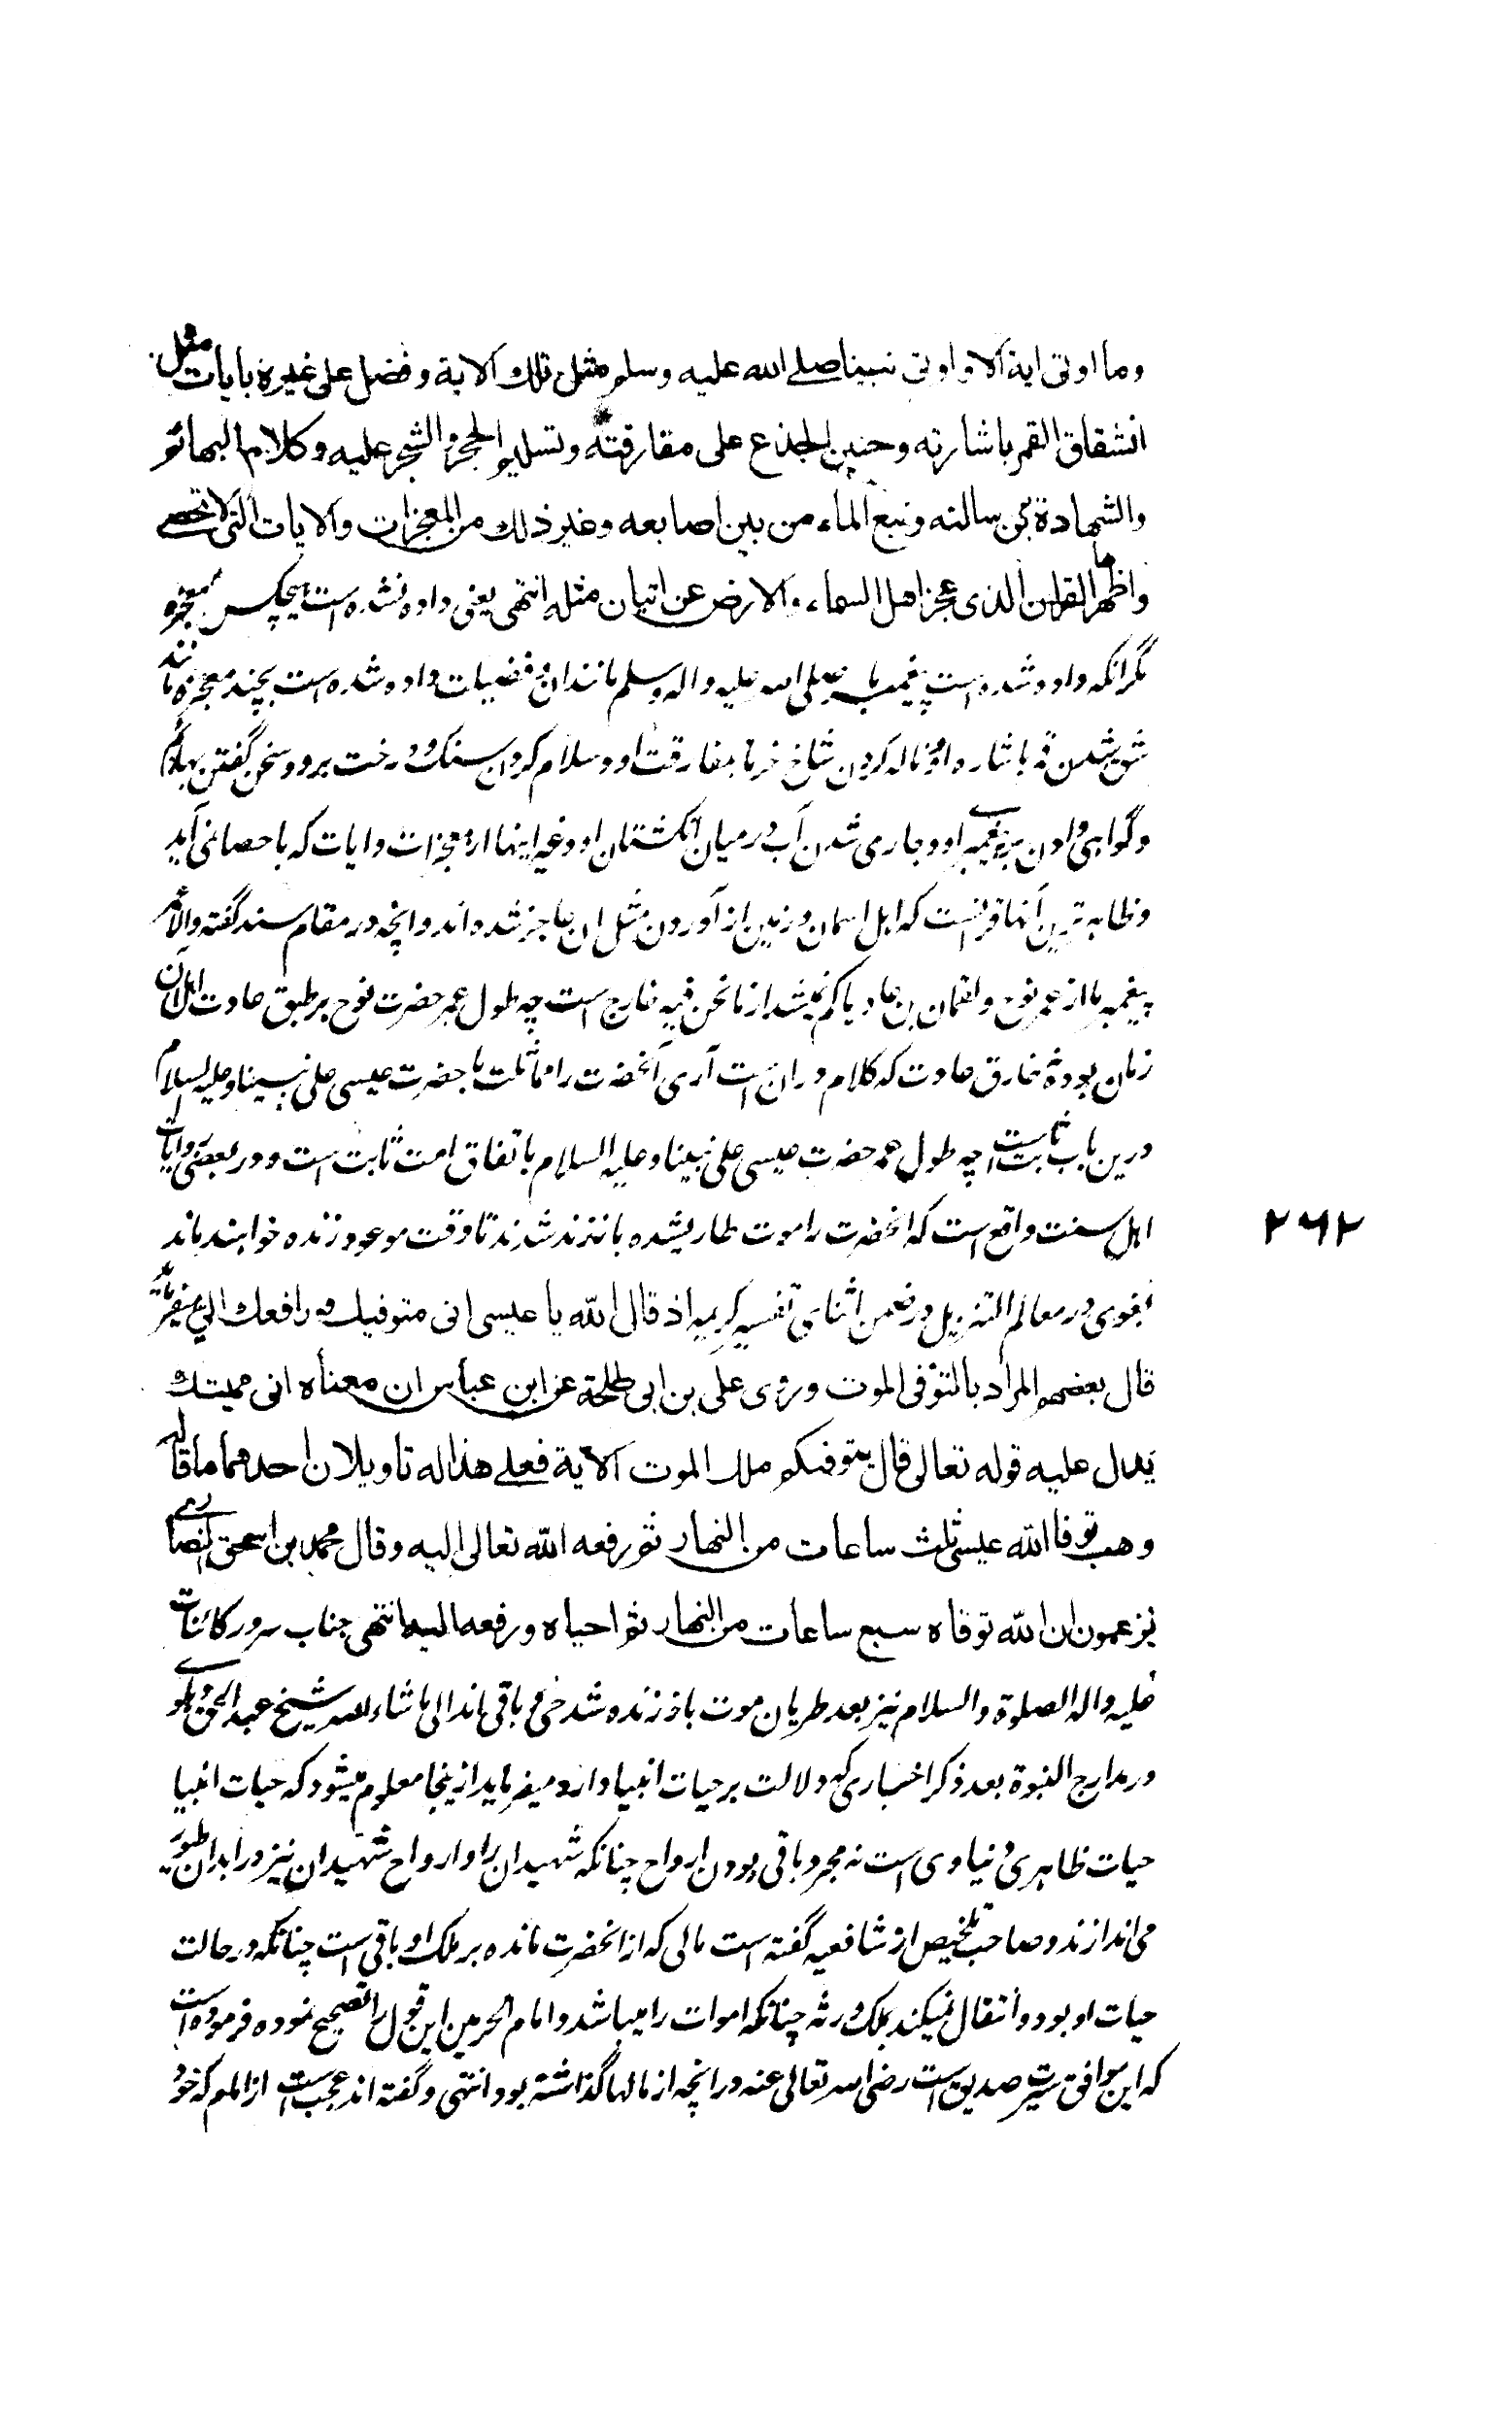 وما اوتی ایة الا و اوتی نبینا صلے الله علیه وسلم مثل تلك الایة وفضل علی غیره بایات مثل
انشقاق القمر باشارته وحنین الجذع علی مفارقته وتسلیم الحجر والشجر علیه وکلام البهائم
والشهادة برسالته ونبع الماء من بین اصابعه وغیر ذلك من المعجزات والایات التی لا تحصے
واظهرها القران الذی عجز اهل السماء والارض عن اتیان مثله انتهی یعنی داده نشده است هیچکس معجزه
مگر آنکه داده شده است پیغمبر ما صلی الله علیه واله وسلم مانند ان و فضیلت داده شده است بچند معجزه مانند
شق شدن قمر باشاره او و ناله کردن شاخ خرما بمفارقت او و سلام کردن سنگ و درخت برو و سخن گفتن بهائم
و گواهی دادن بر پیغمبرے او و جاری شدن آب در میان انگشتان او و غیر اینها از معجزات و ایات که باحصا نمی آید
و ظاهر ترین آنها قرانست که اهل اسمان و زمین از آوردن مثل ان عاجز شده اند و انچه در مقام سند گفته والا عمر
پیغمبر ما از عمر نوح و لقمان بن عاد یا کم نمیشد از ما نحن فیه خارج است چه طول عمر حضرت نوح بر طبق عادت اهل آن
زمان بوده نه خارق عادت که کلام دران است آری آنحضرت را مماثلت با حضرت عیسی علی نبینا وعلیه السلام
درین باب ثابت است چه طول عمر حضرت عیسی علی نبینا وعلیه السلام باتفاق امت ثابت است و در بعضی روایات
اهل سنت واقع است که انحضرت را موت طاریشده باز زنده شدند تا وقت موعود زنده خواهند ماند
۲۶۲
بغوی در معالم التنزیل در ضمن اثنای تفسیر کریمه اذ قال الله یا عیسی انی متوفیك ورافعك الی میفرماید
قال بعضهم المراد بالتوفی الموت وروی علی بن ابی طلحة عن ابن عباس ان معناه انی ممیتك
یدل علیه قوله تعالی قل یتوفیکم ملك الموت الآیة فعلے هذا له تاویلان احدهما ما قاله
وهب توفا الله عیسی ثلث ساعات من النهار ثم رفعه الله تعالی الیه وقال محمد بن اسحق النصارے
یزعمون ان الله توفاه سبع ساعات من النهار ثم احیاه ورفعه الیه انتهی جناب سرور کائنات
علیه واله الصلوة والسلام نیز بعد طریان موت باز زنده شد و حی باقی ماند الی ما شاء الله شیخ عبد الحق دهلوے
در مدارج النبوة بعد ذکر اخباری که دلالت بر حیات انبیا دارد میفرماید ازینجا معلوم میشود که حیات انبیا
حیات ظاهری دنیاوی است نه مجرد باقی بودن ارواح چنانکه شهیدان را و ارواح شهیدان نیز در ابدان طیور
می اندازند و صاحب تلخیص از شافعیه گفته است مالی که از انحضرت مانده بر ملک او باقی است چنانکه در حالت
حیات او بود و انتقال نمیکند بملک ورثه چنانکه اموات را میباشد و امام الحرمین این قول را تصحیح نموده فرموده است
که این موافق سیرت صدیق است رضی الله تعالی عنه در انچه از مالها گذاشته بود انتهی و گفته اند عجب است از امام که خود